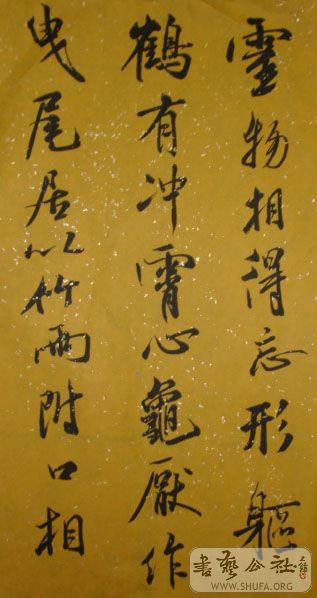 靈物相得忘形軀
鶴有冲霄心龜厭作
曳尾居以竹兩附口相
書藝公社
WWW.SHUFA.ORG